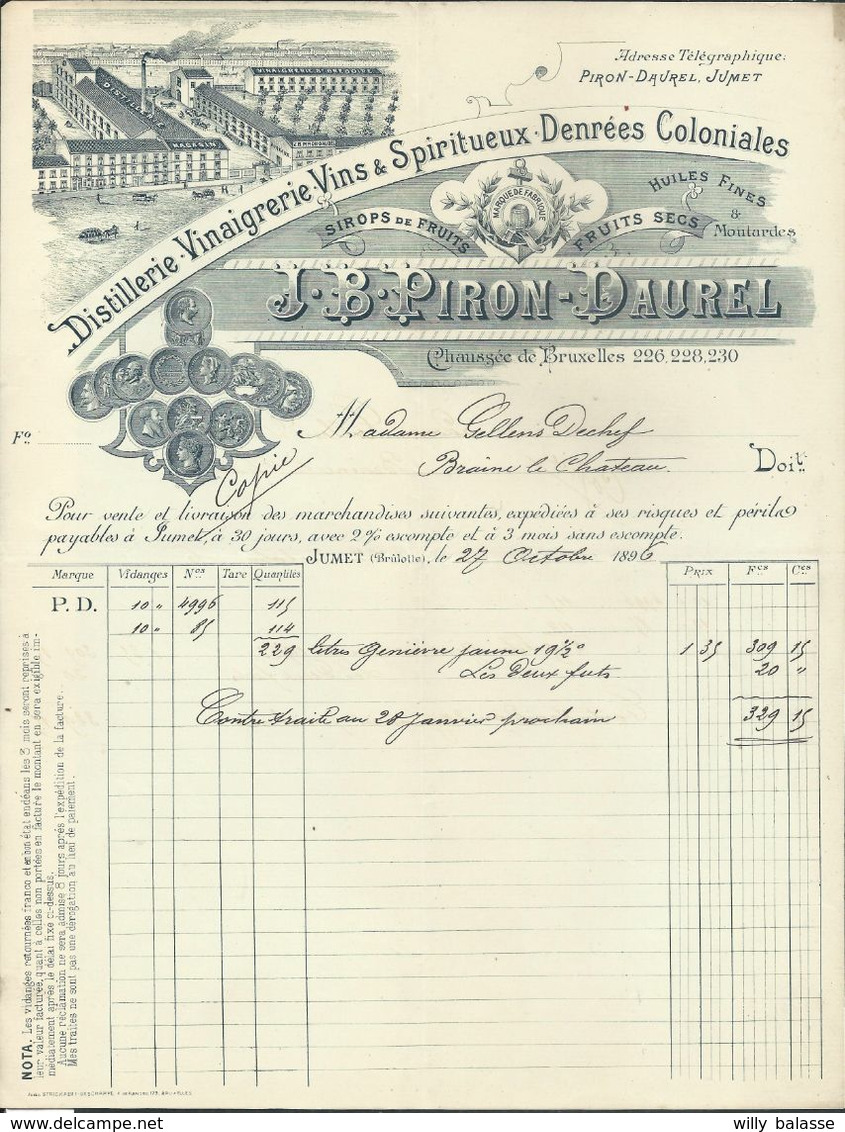 Adresse Télégraphique:
PIRON-DAUREL, JUMET
VINAIGRERIE St GREGOIRE
DISTILLERIE
MAGASIN
Distillerie · Vinaigrerie · Vins & Spiritueux · Denrées Coloniales
MARQUE DE FABRIQUE
SIROPS DE FRUITS
FRUITS SECS
HUILES FINES
&
Moutardes
J·B·PIRON-DAUREL
Chaussée de Bruxelles 226, 228, 230
Fo
Madame Gellens Dechef
Braine le Chateau.
Doit:
Copie
Pour vente et livraison des marchandises suivantes, expédiées à ses risques et périls
payables à Jumet, à 30 jours, avec 2% escompte et à 3 mois sans escompte.
JUMET (Brûlotte), le 27 Octobre 1896
Marque Vidanges Nos Tare Quantités PRIX Fcs Ces
P. D. 10 " 4996 115
10 " 85 114
229 litres Genièvre jaune 19 1/2° 1 35 309 15
Les Deux futs 20 "
Contre traite au 28 Janvier prochain 329 15
NOTA. Les vidanges retournées franco et en bon état endéans les 3 mois seront reprises à
leur valeur facturée, quant à celles non portées en facture le montant en sera exigible im-
médiatement après le délai fixé ci-dessus.
Aucune réclamation ne sera admise 8 jours après l'expédition de la facture.
Mes traites ne sont pas une dérogation au lieu de paiement.
willy balasse